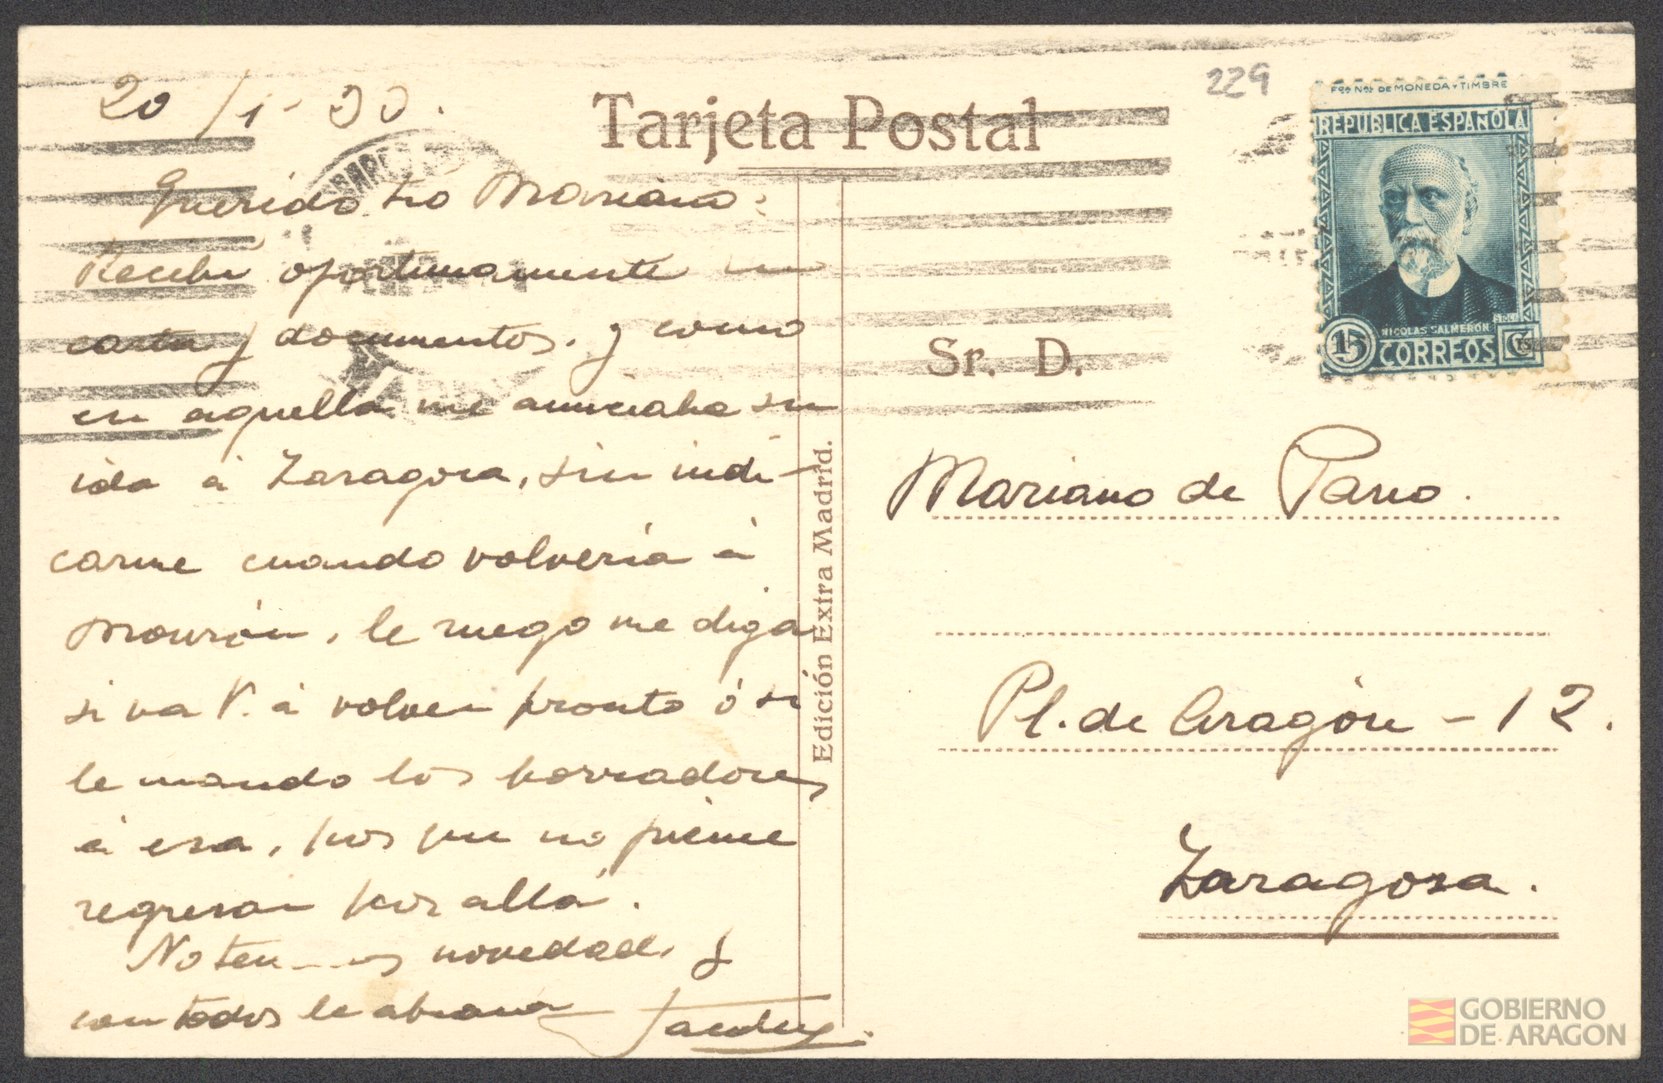 20/1-33.
Querido tio Mariano:
Recibi oportunamente su
carta y documentos. y como
en aquella me anunciaba su
ida á Zaragoza, sin indi-
carme cuando volvería á
Monzón, le ruego me diga
si va V. á volver pronto ó si
le mando los borradores
á esa, por que no piense
regresar por allá.
No tenemos novedad. y
con todos le abraza
Tarjeta Postal
229
Fca Nal DE MONEDA Y TIMBRE
REPUBLICA ESPAÑOLA
NICOLAS SALMERON
15 CORREOS Cts
Edición Extra Madrid.
Sr. D.
Mariano de Pano.
Pl. de Aragón - 12.
Zaragoza.
GOBIERNO
DE ARAGON